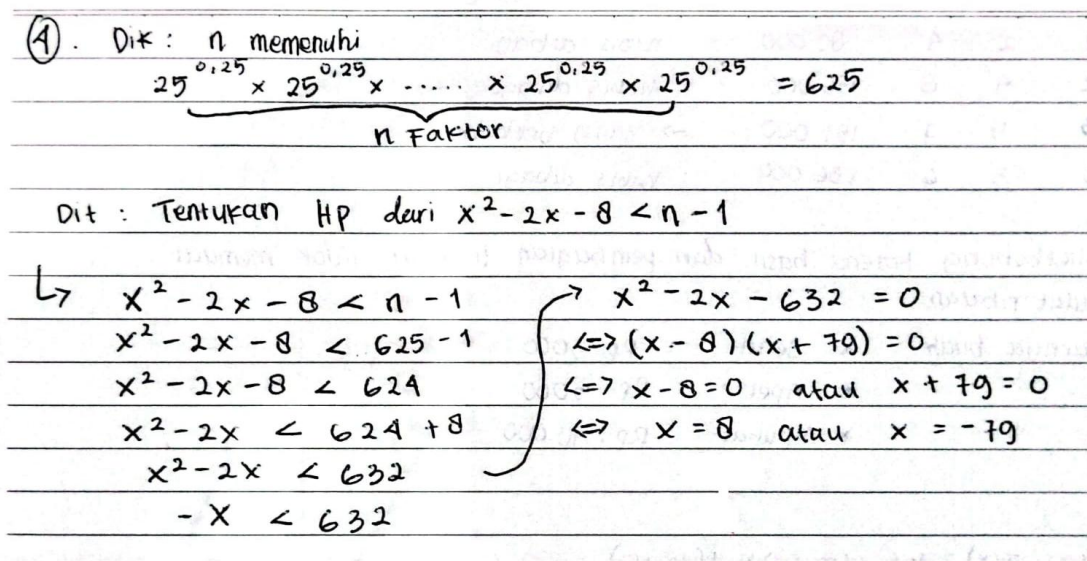 4. Dik : n memenuhi
25^0,25 × 25^0,25 × ...... × 25^0,25 × 25^0,25 = 625
n Faktor
Dit : Tentukan HP dari x² - 2x - 8 < n - 1
↳ x² - 2x - 8 < n - 1
x² - 2x - 8 < 625 - 1
x² - 2x - 8 < 624
x² - 2x < 624 + 8
x² - 2x < 632
- x < 632
→ x² - 2x - 632 = 0
<=> (x - 8) (x + 79) = 0
<=> x - 8 = 0 atau x + 79 = 0
<=> x = 8 atau x = -79